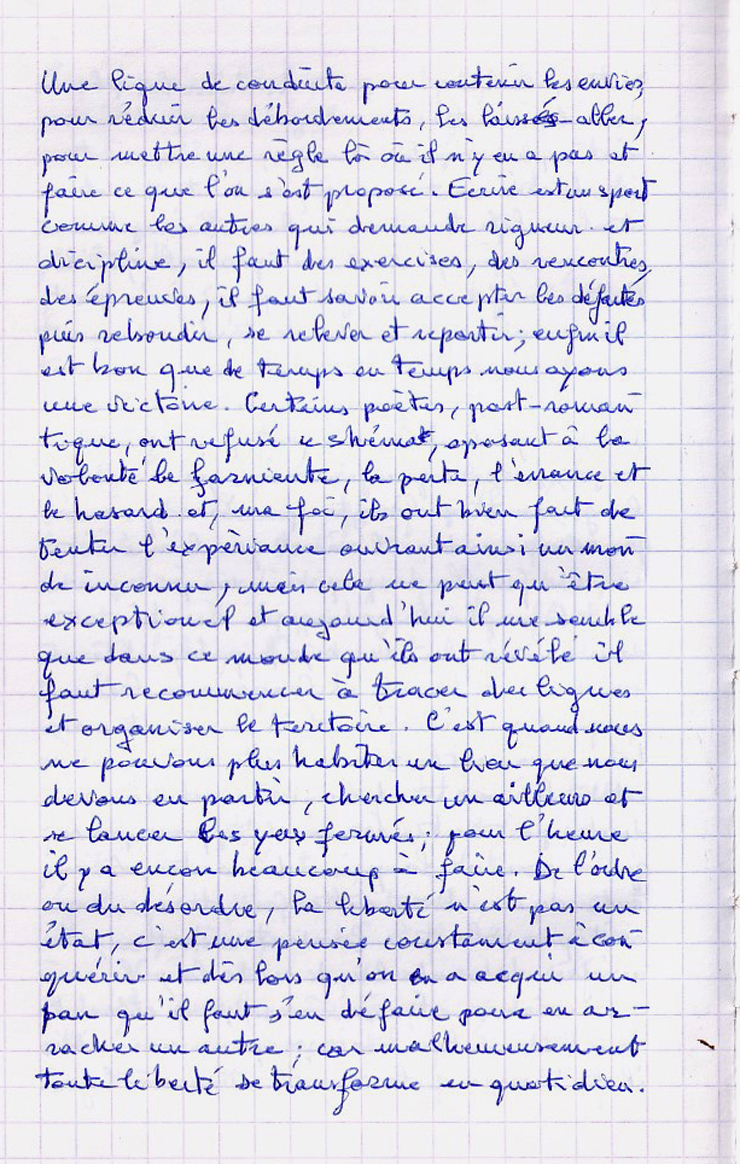 Une ligne de conduite pour contenir les envies,
pour réduir les débordements, les laissés-aller,
pour mettre une règle là où il n'y en a pas et
faire ce que l'on s'est proposé. Ecrire est un sport
comme les autres qui demande rigueur et
dicipline, il faut des exercises, des rencontres,
des épreuves, il faut savoir accepter les défaites
puis rebondir, se relever et repartir; enfin il
est bon que de temps en temps nous ayons
une victoire. Certains poètes, post-roman
tique, ont refusé ce shéma, oposant à la
volonté le farniente, la perte, l'errance et
le hasard et, ma foi, ils ont bien fait de
tenter l'expériance ouvrant ainsi un mon
de inconnu, mais cela ne peut qu'être
exceptionel et aujourd'hui il me semble
que dans ce monde qu'ils ont révélé il
faut recommencer à tracer des lignes
et organiser le teritoire. C'est quand nous
ne pouvons plus habiter un lieu que nous
devons en partir, chercher un ailleurs et
se lancer les yeux fermés; pour l'heure
il y a encore beaucoup à faire. De l'ordre
ou du désordre, la liberté n'est pas un
état, c'est une pensée constament à con
quérir et dès lors qu'on en a acqui un
pan qu'il faut s'en défaire pour en ar-
racher un autre; car malheureusement
toute liberté se transforme en quotidien.